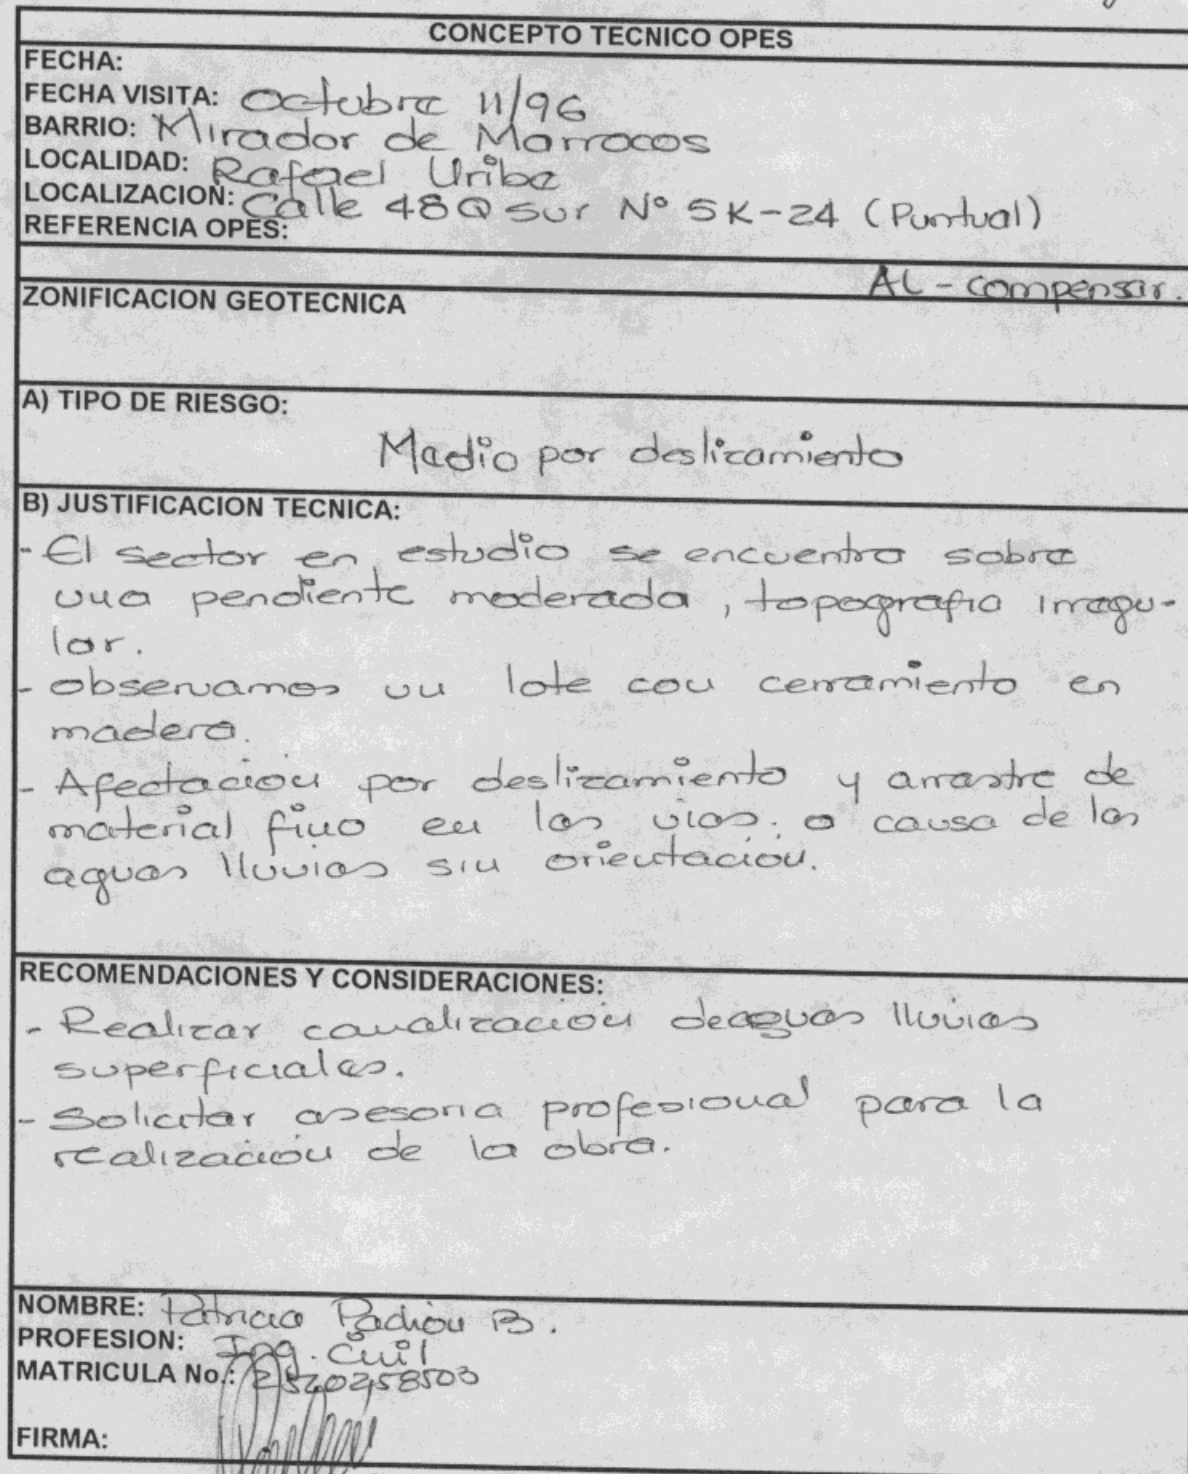 CONCEPTO TECNICO OPES
FECHA:
FECHA VISITA: Octubre 11/96
BARRIO: Mirador de Marrocos
LOCALIDAD: Rafael Uribe
LOCALIZACION: Calle 48Q sur N° 5K-24 (Puntual)
REFERENCIA OPES:
AL - compensar.
ZONIFICACION GEOTECNICA
A) TIPO DE RIESGO:
Medio por deslizamiento
B) JUSTIFICACION TECNICA:
- El sector en estudio se encuentra sobre
una pendiente moderada, topografia irregu-
lar.
- observamos un lote con cerramiento en
madera.
- Afectación por deslizamiento y arrastre de
material fino en las vias. a causa de las
aguas lluvias sin orientación.
RECOMENDACIONES Y CONSIDERACIONES:
- Realizar canalización de aguas lluvias
superficiales.
- Solicitar asesoria profesional para la
realización de la obra.
NOMBRE: Patricia Padrón B.
PROFESION: Ing. Civil
MATRICULA No.:
FIRMA: